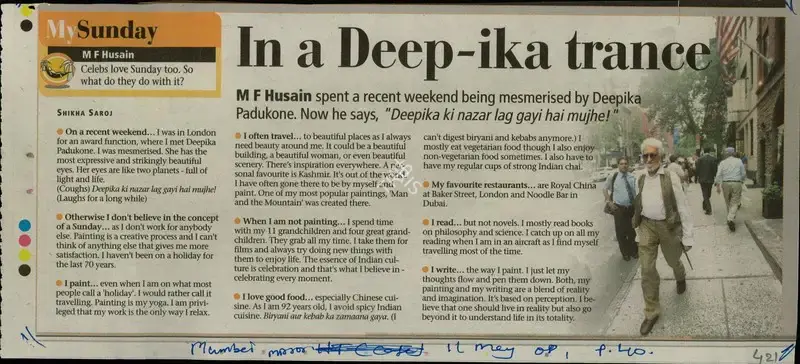 MySunday
M F Husain
Celebs love Sunday too. So
what do they do with it?
In a Deep-ika trance
M F Husain spent a recent weekend being mesmerised by Deepika
Padukone. Now he says, "Deepika ki nazar lag gayi hai mujhe!"
SHIKHA SAROJ
On a recent weekend... I was in London
for an award function, where I met Deepika
Padukone. I was mesmerised. She has the
most expressive and strikingly beautiful
eyes. Her eyes are like two planets - full of
light and life.
(Coughs) Deepika ki nazar lag gayi hai mujhe!
(Laughs for a long while)
Otherwise I don't believe in the concept
of a Sunday... as I don't work for anybody
else. Painting is a creative process and I can't
think of anything else that gives me more
satisfaction. I haven't been on a holiday for
the last 70 years.
I paint... even when I am on what most
people call a 'holiday'. I would rather call it
travelling. Painting is my yoga. I am privi-
leged that my work is the only way I relax.
I often travel... to beautiful places as I always
need beauty around me. It could be a beautiful
building, a beautiful woman, or even beautiful
scenery. There's inspiration everywhere. A per-
sonal favourite is Kashmir. It's out of the world.
I have often gone there to be by myself and
paint. One of my most popular paintings, 'Man
and the Mountain' was created there.
When I am not painting... I spend time
with my 11 grandchildren and four great grand-
children. They grab all my time. I take them for
films and always try doing new things with
them to enjoy life. The essence of Indian cul-
ture is celebration and that's what I believe in -
celebrating every moment.
I love good food... especially Chinese cui-
sine. As I am 92 years old, I avoid spicy Indian
cuisine. Biryani aur kebab ka zamaana gaya. (I
can't digest biryani and kebabs anymore.) I
mostly eat vegetarian food though I also enjoy
non-vegetarian food sometimes. I also have to
have my regular cups of strong Indian chai.
My favourite restaurants... are Royal China
at Baker Street, London and Noodle Bar in
Dubai.
I read... but not novels. I mostly read books
on philosophy and science. I catch up on all my
reading when I am in an aircraft as I find myself
travelling most of the time.
I write... the way I paint. I just let my
thoughts flow and pen them down. Both, my
painting and my writing are a blend of reality
and imagination. It's based on perception. I be-
lieve that one should live in reality but also go
beyond it to understand life in its totality.
Mumbai mirror 11 May 08, P.40.
421